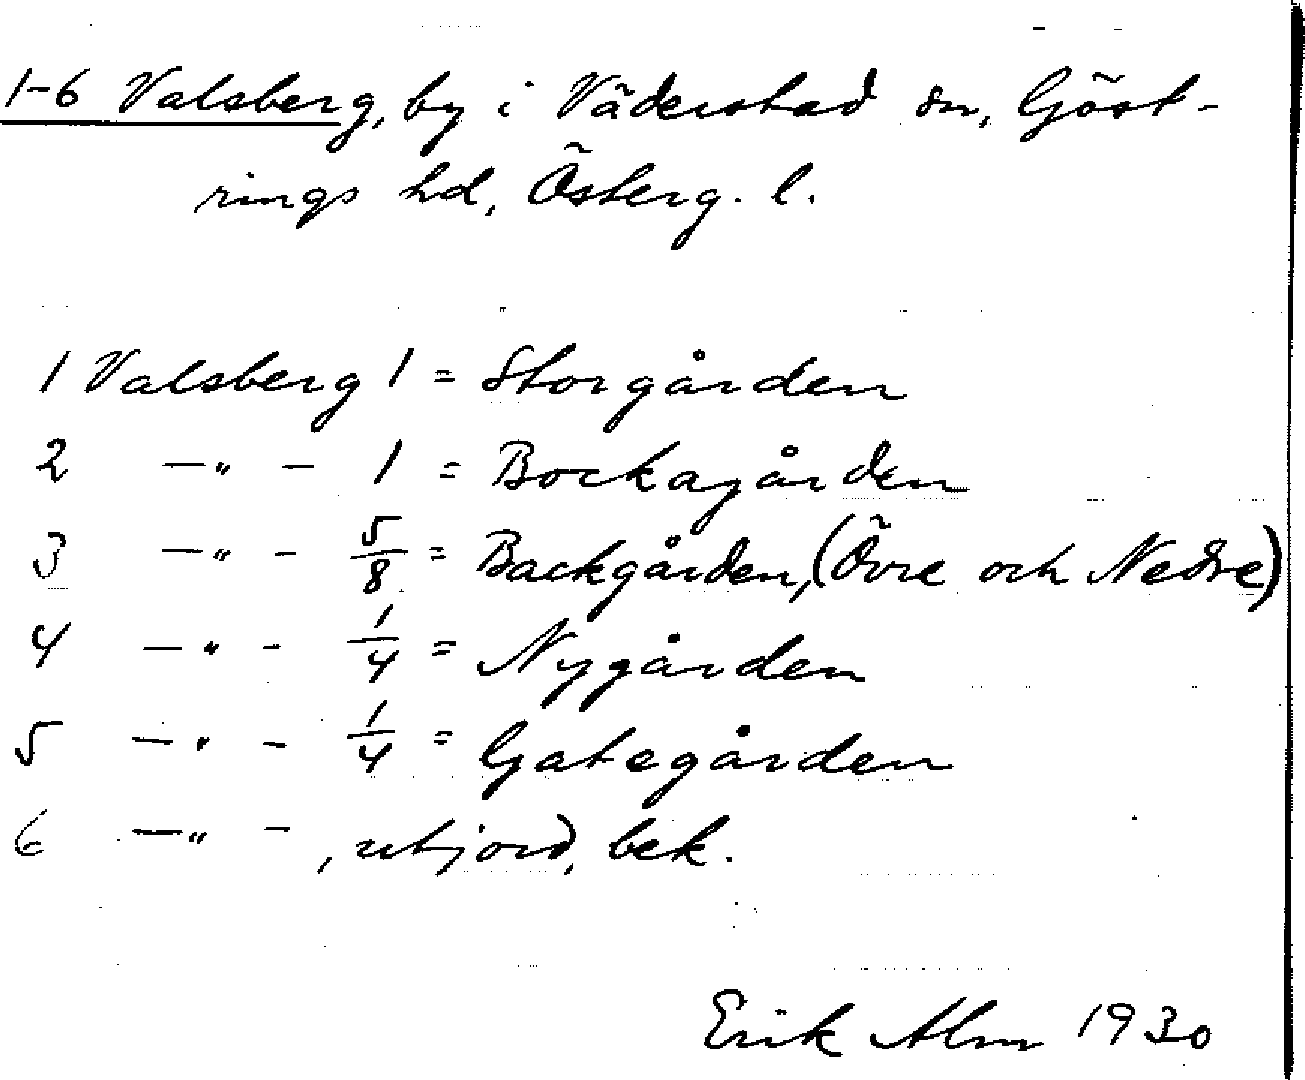 1-6 Valsberg, by i Väderstad sn, Göst-
rings hd, Österg. l.
1 Valsberg 1 = Storgården
2 —"— 1 = Bockagården
3 —"— 5/8 = Backgården, (Övre och Nedre)
4 —"— 1/4 = Nygården
5 —"— 1/4 = Gategården
6 —"—, utjord, bek.
Erik Alm 1930